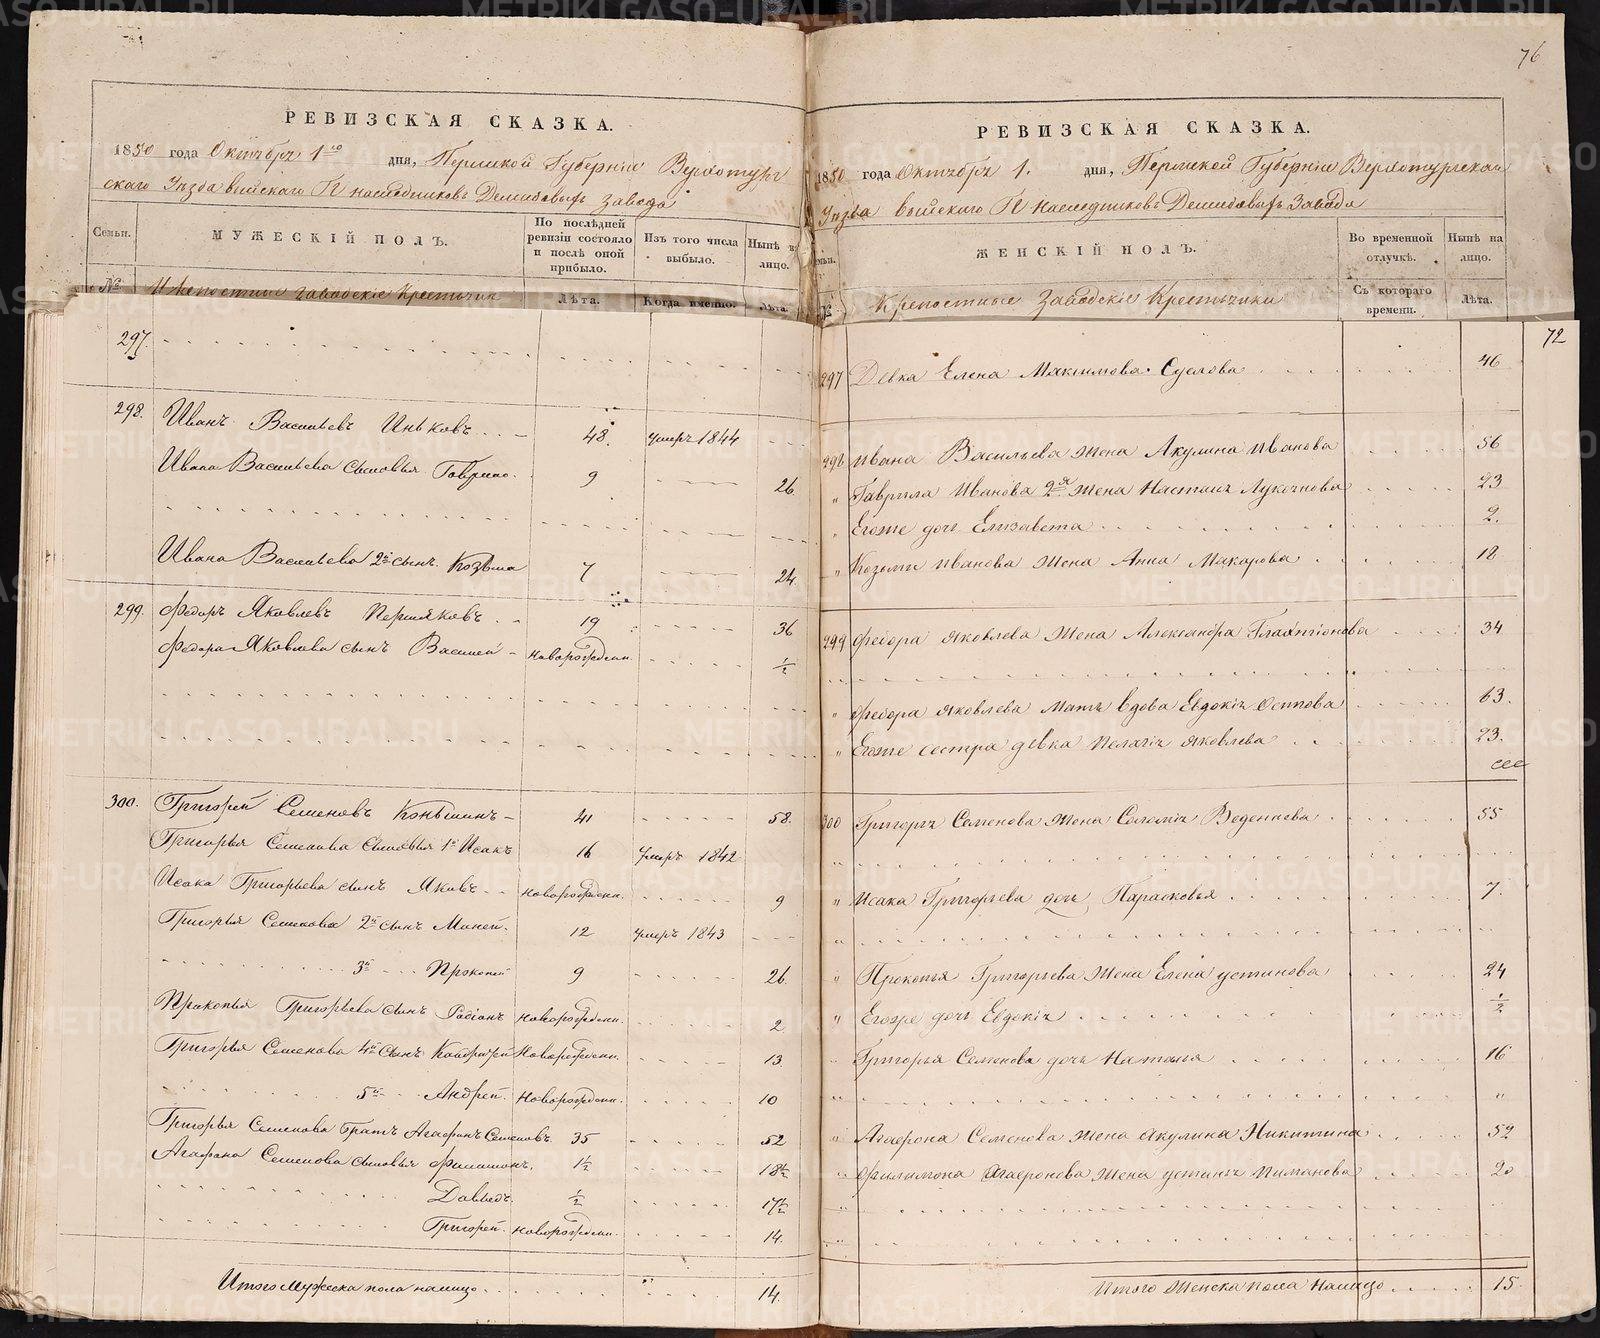 76
РЕВИЗСКАЯ СКАЗКА.
1850 года Октября 1го дня, Пермской Губерніи Верхотур
скаго Уѣзда Выйскаго Гг наслѣдниковъ Демидовыхъ завода
Семьи. МУЖЕСКІЙ ПОЛЪ. По послѣдней ревизіи состояло и послѣ оной прибыло. Изъ того числа выбыло. Нынѣ на лицо.
№ Крепостные заводскіе Крестьяна Лѣта. Когда именно. Лѣта.
297.
298. Иванъ Васильевъ Иньковъ 48. умеръ 1844
Ивана Васильева сыновья Гаврило. 9 26.
Ивана Васильева 2й сынъ Козьма 7 24.
299. Федоръ Яковлевъ Першаковъ 19 36
Федора Яковлева сынъ Василей новорожден. ½
300. Григорей Семеновъ Коньшинъ 41 58.
Григорья Семенова сыновья 1й Исакъ 16 умеръ 1842
Исака Григорьева сынъ Яковъ новорожден. 9
Григорья Семенова 2й сынъ Миней. 12 умеръ 1843
3й Прокопей 9 26.
Прокопья Григорьева сынъ Родіонъ новорожден. 2
Григорья Семенова 4й сынъ Кондратей новорожден. 13.
5й Андрей. новорожден. 10
Григорья Семенова братъ Агафонъ Семеновъ 35 52
Агафона Семенова сыновья Филимонъ. 1½ 18½
Давыдъ. ½ 17½
Григорей. новорожден. 14.
Итого мужеска пола налицо 14.
РЕВИЗСКАЯ СКАЗКА.
1850 года Октября 1. дня, Пермской Губерніи Верхотурскаго
Уѣзда Выйскаго Гг Наслѣдниковъ Демидовыхъ Завода
ЖЕНСКІЙ ПОЛЪ. Во временной отлучкѣ. Нынѣ на лицо.
№ Крепостные Заводскіе Крестьянки Съ котораго времени. Лѣта.
72
297 Девка Елена Максимова Суслова 46
298 Ивана Васильева жена Акулина Иванова 56
" Гаврила Иванова 2я жена Настасья Лукоянова 23
" Егоже дочь Елизавета 2.
" Козьмы Иванова жена Анна Макарова 18
299 Федора Яковлева жена Александра Галактіонова 34
" Федора Яковлева мать вдова Евдокія Осипова 63.
" Егоже сестра девка Пелагія Яковлева 23.
300 Григорья Семенова жена Соломія Веденихова 55
" Исака Григорьева дочь Парасковья 7.
" Прокопья Григорьева жена Елена Устинова 24
" Егоже дочь Евдокія ½
" Григорья Семенова дочь Наталья 16
" Агафона Семенова жена Акулина Никитина 52
" Филимона Агафонова жена Устинья Пиманова 20
Итого женска пола налицо 15
METRIKI.GASO-URAL.RU